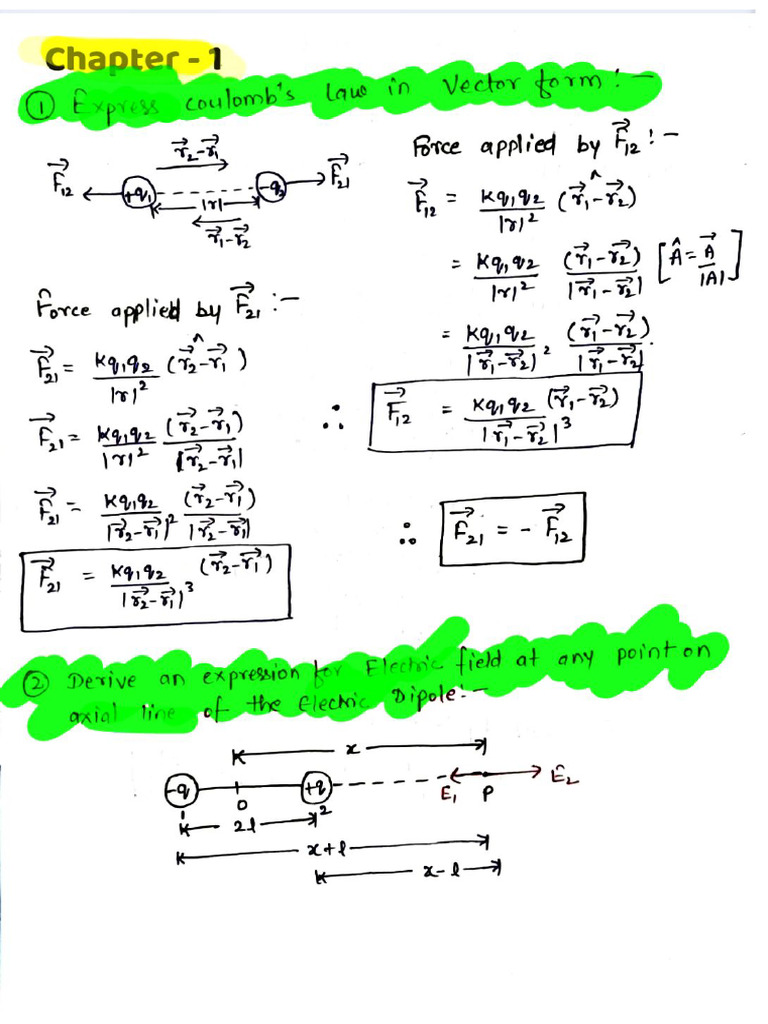 Chapter - 1
① Express Coulomb's Law in Vector form :-
r⃗₂-r⃗₁
F⃗₁₂ +q₁ -q₂ F⃗₂₁
|r|
r⃗₁-r⃗₂
Force applied by F⃗₂₁ :-
F⃗₂₁ = Kq₁q₂/|r|² (r⃗₂-r⃗₁)^
F⃗₂₁ = Kq₁q₂/|r|² (r⃗₂-r⃗₁)/|r⃗₂-r⃗₁|
F⃗₂₁ = Kq₁q₂/|r⃗₂-r⃗₁|² (r⃗₂-r⃗₁)/|r⃗₂-r⃗₁|
F⃗₂₁ = Kq₁q₂/|r⃗₂-r⃗₁|³ (r⃗₂-r⃗₁)
Force applied by F⃗₁₂ :-
F⃗₁₂ = Kq₁q₂/|r|² (r⃗₁-r⃗₂)^
= Kq₁q₂/|r|² (r⃗₁-r⃗₂)/|r⃗₁-r⃗₂| [Â = A⃗/|A|]
= Kq₁q₂/|r⃗₁-r⃗₂|² (r⃗₁-r⃗₂)/|r⃗₁-r⃗₂|.
∴ F⃗₁₂ = Kq₁q₂/|r⃗₁-r⃗₂|³ (r⃗₁-r⃗₂)
∴ F⃗₂₁ = - F⃗₁₂
② Derive an expression for Electric field at any point on
axial line of the Electric Dipole :-
x
-q O +q E₁ P E₂
1 2l 2
x+l
x-l